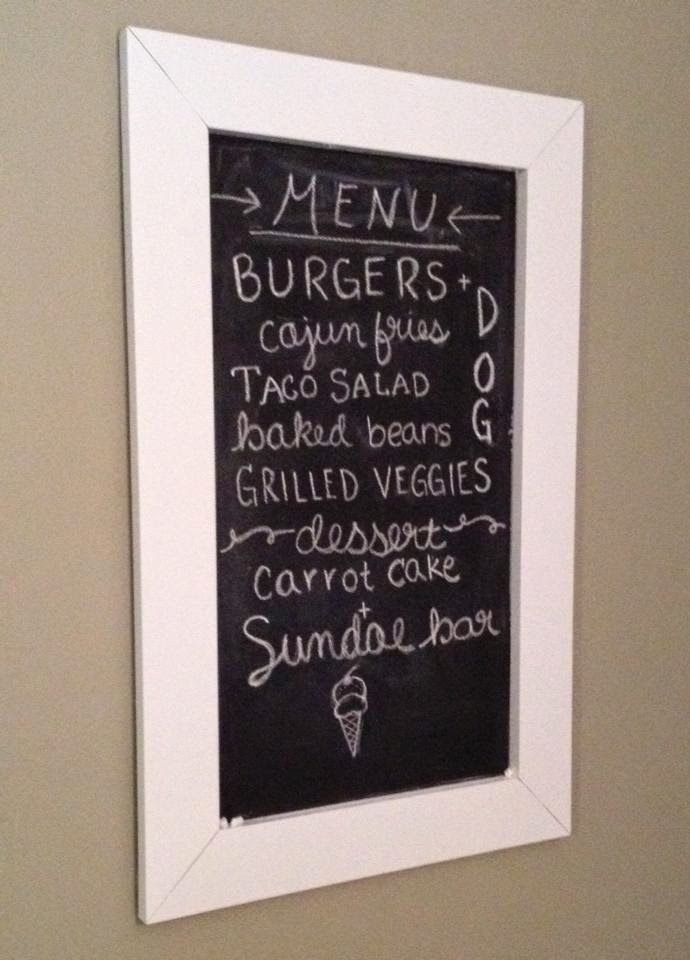 → MENU ←
BURGERS + DOGS
cajun fries
TACO SALAD
baked beans
GRILLED VEGGIES
dessert
carrot cake
+
Sundae bar